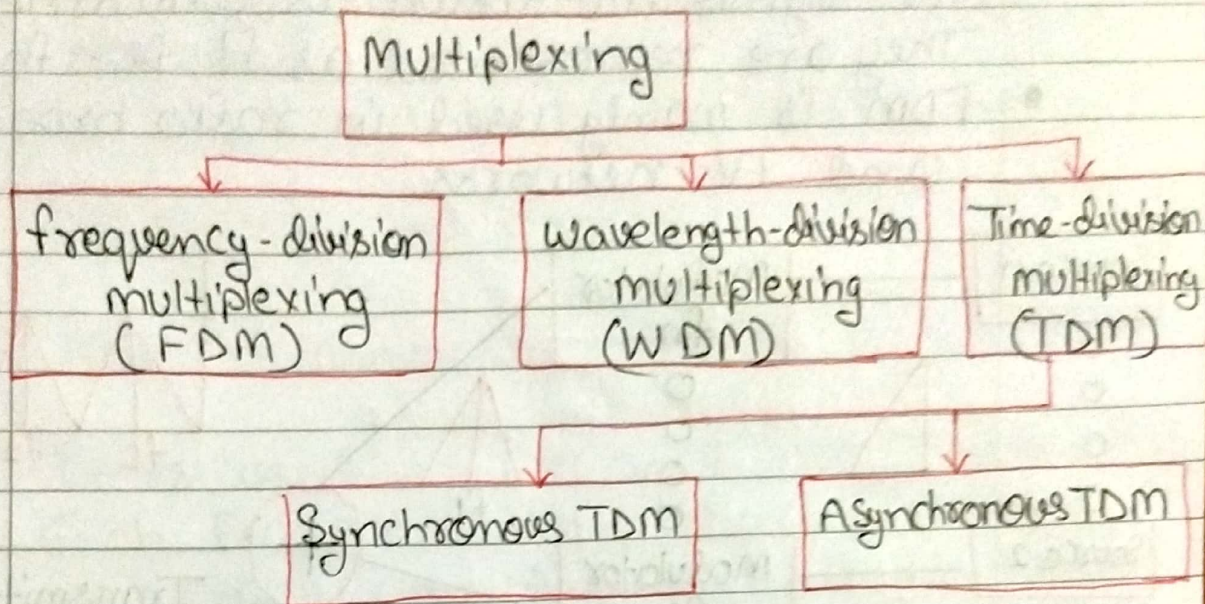 Multiplexing
frequency-division
multiplexing
(FDM)
Wavelength-division
multiplexing
(WDM)
Time-division
multiplexing
(TDM)
Synchronous TDM
Asynchronous TDM